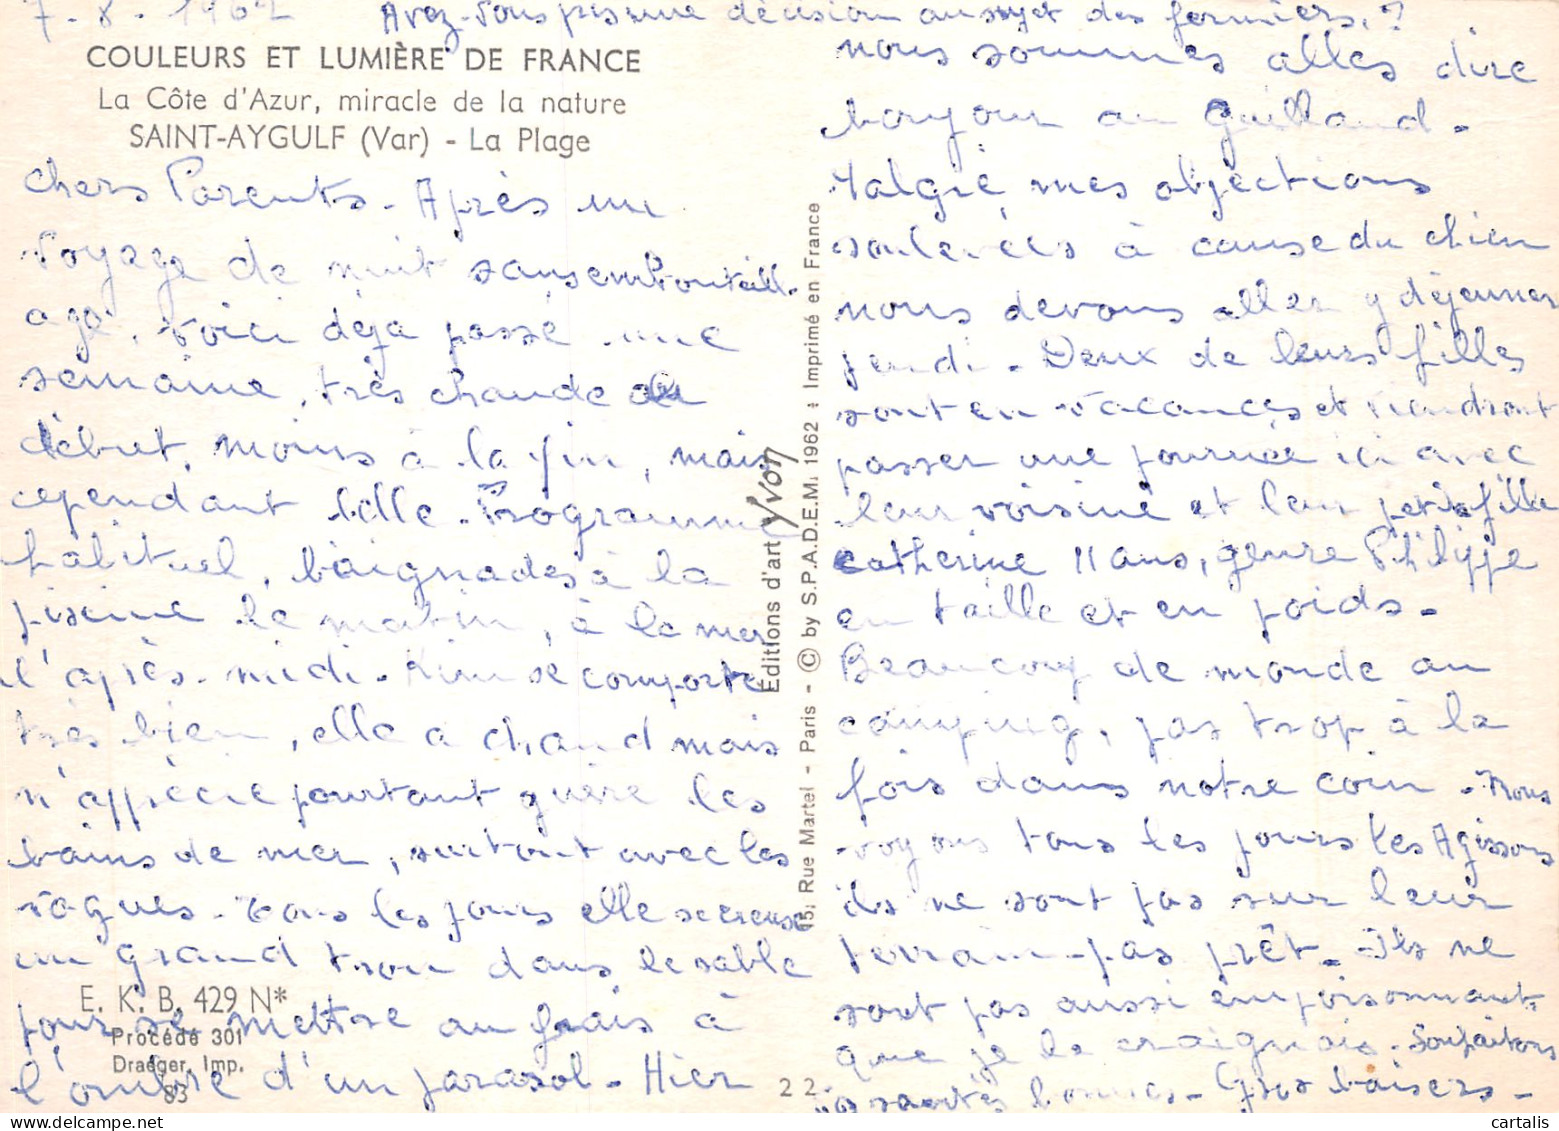 7-8-1962 Avez-vous pris une décision au sujet des fermiers ?
COULEURS ET LUMIÈRE DE FRANCE
La Côte d'Azur, miracle de la nature
SAINT-AYGULF (Var) - La Plage
chers Parents - Après un
voyage de nuit sans embouteill-
age. voici déjà passé une
semaine, très chaude au
début, moins à la fin, mais
cependant belle - Programme
habituel, baignades à la
piscine le matin, à la mer
l'après-midi - Kim se comporte
très bien, elle a chaud mais
n'apprécie pourtant guère les
bains de mer, surtout avec les
vagues - tous les jours elle se creuse
un grand trou dans le sable
pour se mettre au frais à
l'ombre d'un parasol - Hier
E. K. B. 429 N*
Procédé 301
Draeger, Imp.
83
Éditions d'art Yvon
15, Rue Martel - Paris - © by S.P.A.D.E.M. 1962 - Imprimé en France
22
nous sommes allés dire
bonjour au Guilland -
Malgré mes objections
soulevées à cause du chien
nous devons aller y déjeuner
jeudi - Deux de leurs filles
sont en vacances et viendront
passer une journée ici avec
leur voisine et leur petite fille
Catherine 11 ans, genre Philippe
en taille et en poids -
Beaucoup de monde au
camping, pas trop à la
fois dans notre coin - Nous
voyons tous les jours les Agissons
ils ne sont pas sur leur
terrain - pas prêt - Ils ne
sont pas aussi empoisonnants
que je le craignais - Souhaitons
santés bonnes - Gros baisers -
www.cartalis.com
cartalis